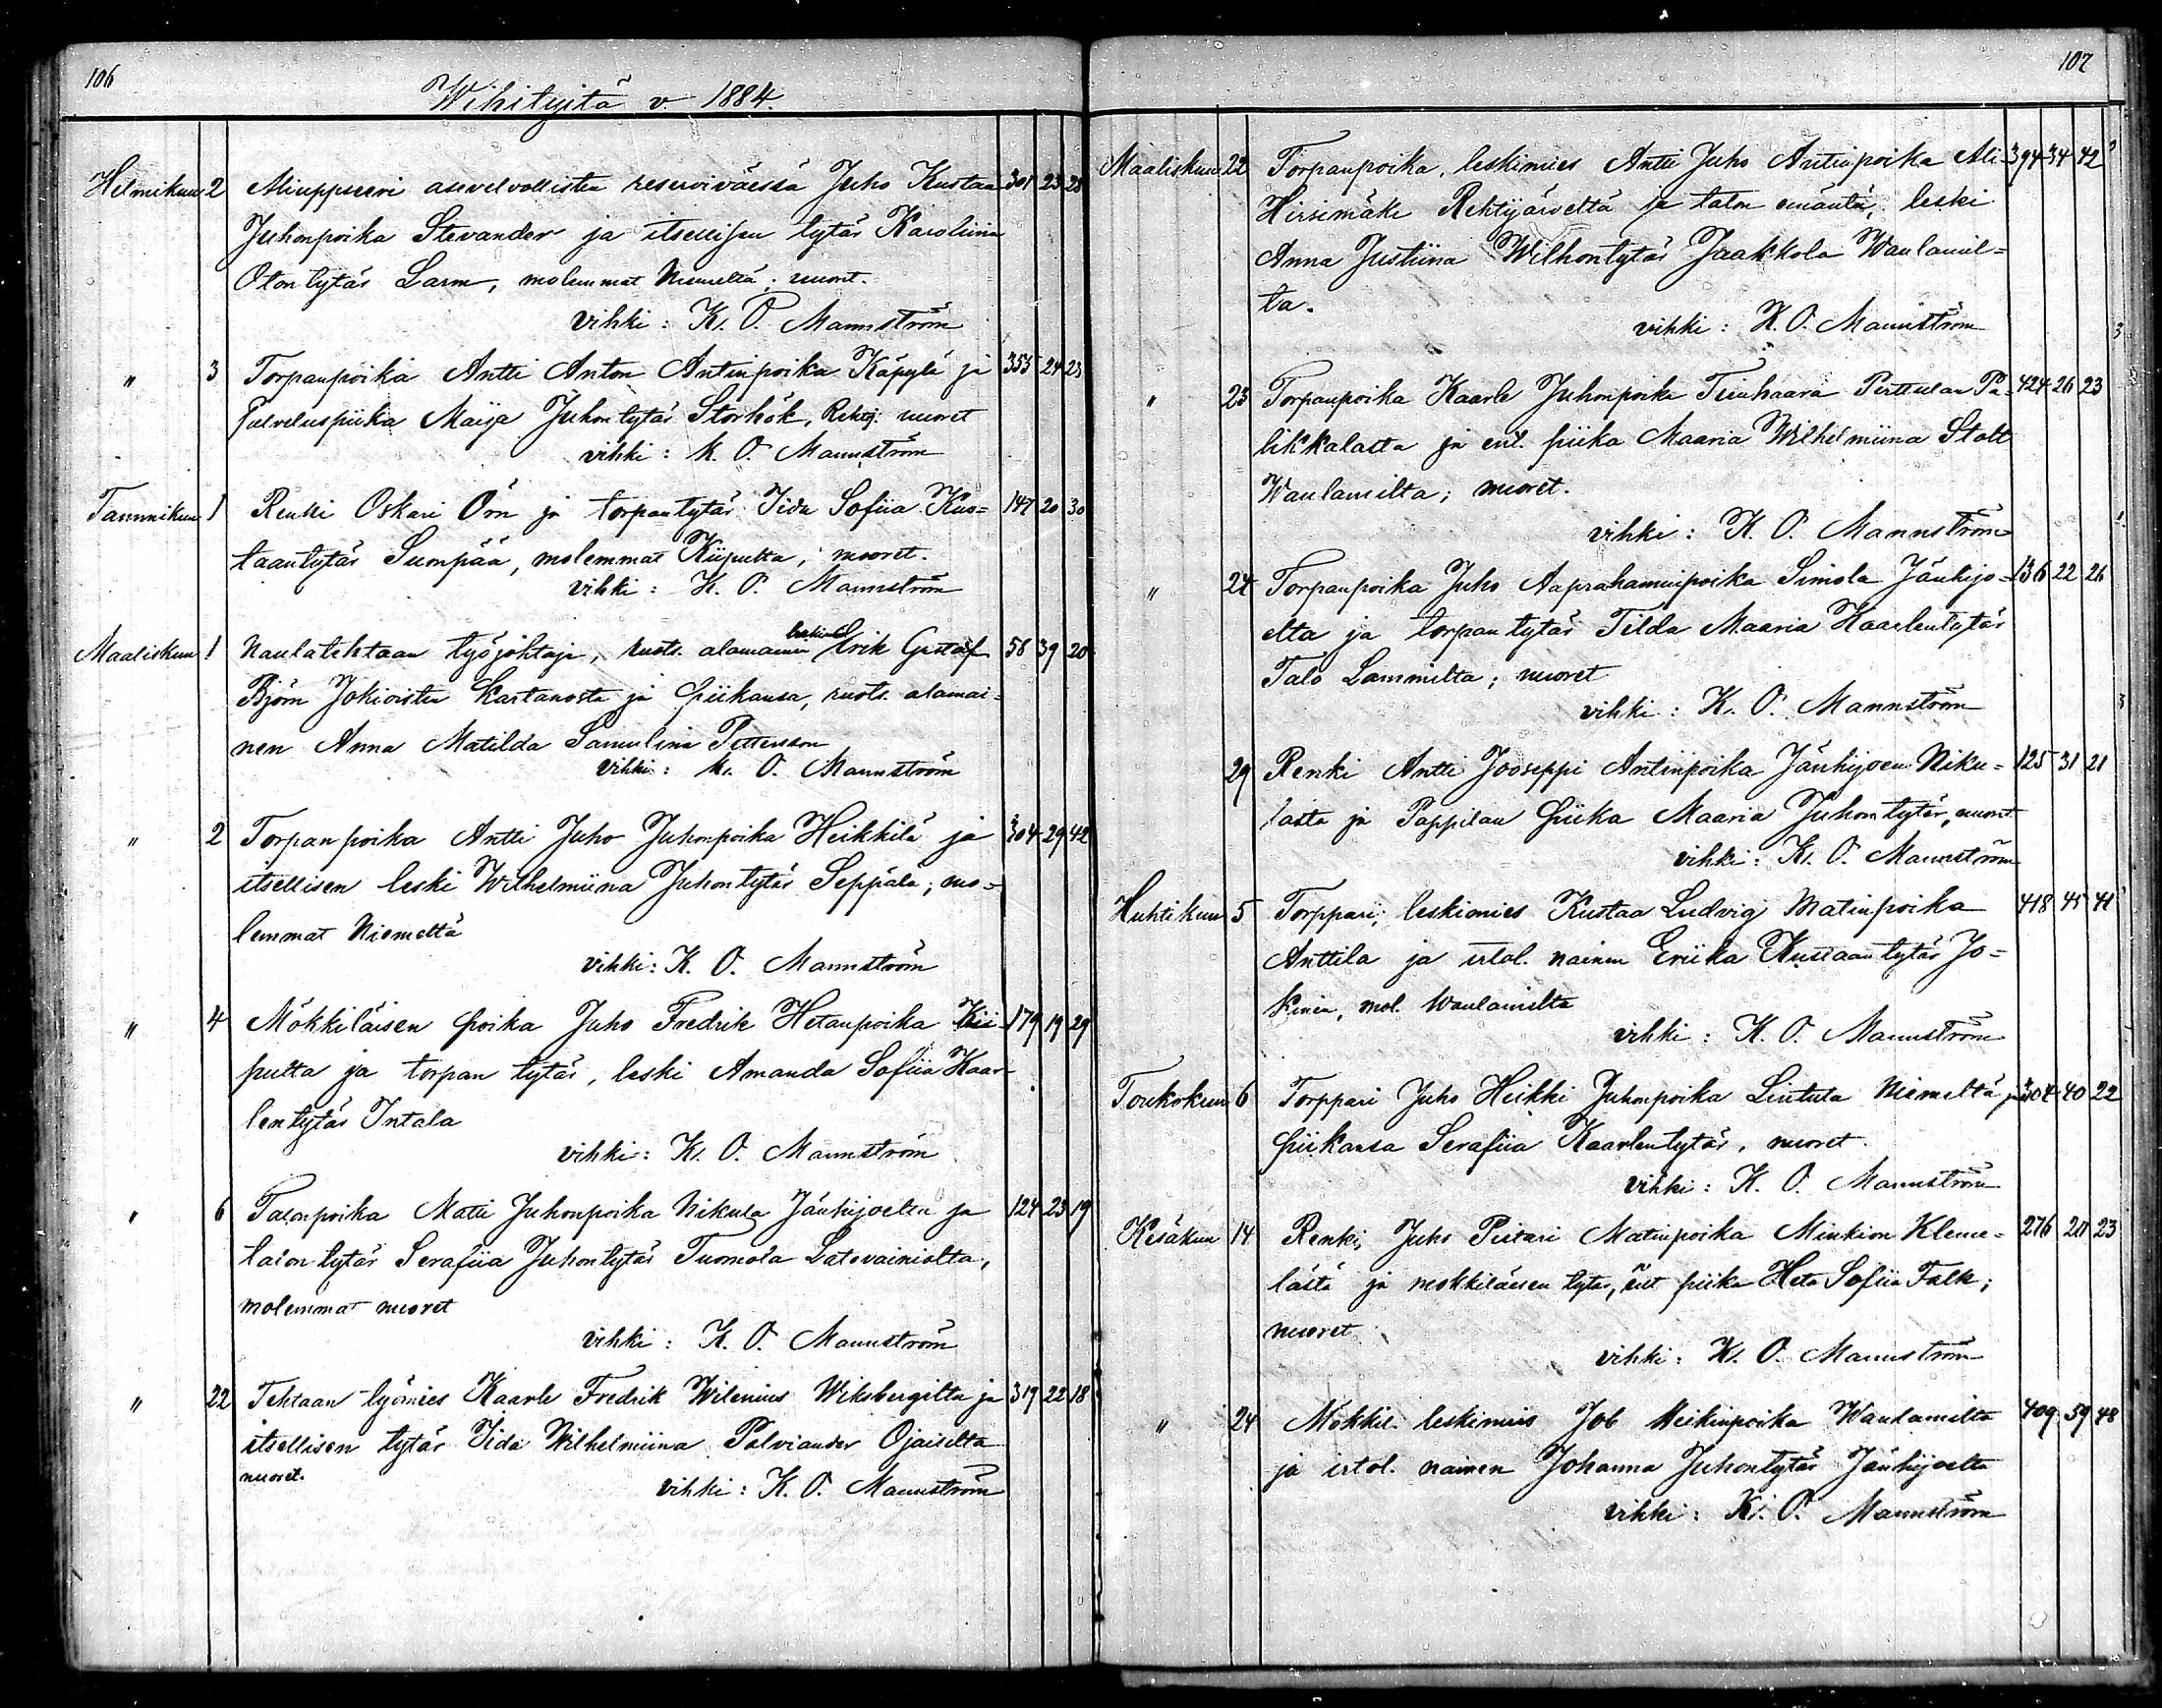 106
Wihityitä v. 1884.
Helmikuu 2 Aliuppseeri asevelvollisten reserviväessä Juho Kustaa 301 23 28
Juhonpoika Stevander ja itsellisen tytär Karoliina
Otontytär Larm, molemmat Niemeltä; nuoret.
vihki: K. O. Mannström
" 3 Torpanpoika Antti Anton Antinpoika Käpylä ja 355 24 23
Palveluspiika Maija Juhontytär Storhök, Rehtij. nuoret
vihki: K. O. Mannström
Tammikuu 1 Renki Oskari Örn ja torpantytär Iida Sofiia Kus= 147 20 30
taantytär Suonpää, molemmat Kiipulta; nuoret.
vihki: K. O. Mannström
Maaliskuu 1 Naulatehtaan työjohtaja, ruots. alamainen leskimies Erik Gustaf 58 39 20
Björn Jokioisten Kartanosta ja piikansa, ruots. alamai=
nen Anna Matilda Samulina Pettersson
vihki: K. O. Mannström
" 2 Torpanpoika Antti Juho Juhonpoika Heikkilä ja 304 29 42
itsellisen leski Wilhelmiina Juhontytär Seppälä; mo=
lemmat Niemeltä
vihki: K. O. Mannström
" 4 Mökkiläisen poika Juho Fredrik Hetanpoika Kii 179 19 29
pulta ja torpan tytär, leski Amanda Sofiia Kaar-
lentytär Intala
vihki: K. O. Mannström
" 6 Talonpoika Matti Juhonpoika Nikula Jänhijoelta ja 124 23 19
talontytär Serafiia Juhontytär Tuomola Latovainiolta,
molemmat nuoret
vihki: K. O. Mannström
" 22 Tehtaan työmies Kaarle Fredrik Wilenius Wiksbergiltä ja 319 22 18
itsellisen tytär Iida Wilhelmiina Palviander Ojaiselta
nuoret.
vihki: K. O. Mannström
107
Maaliskuu 22 Torpanpoika, leskimies Antti Juho Antinpoika Ali- 394 34 42
Hirsimäki Rehtijärveltä ja talon emäntä, leski
Anna Justiina Wilhontytär Jaakkola Waulamil=
ta.
vihki: K. O. Mannström
" 23 Torpanpoika Kaarle Juhonpoika Tienhaara Perttulan Pa- 424 26 23
likkalasta ja ent. piika Maaria Wilhelmiina Stolt
Waulamilta; nuoret.
vihki: K. O. Mannström
" 24 Torpanpoika Juho Aaprahaminpoika Simola Jänhijo- 136 22 26
elta ja torpantytär Tilda Maaria Kaarlentytär
Talo Lammilta; nuoret
vihki: K. O. Mannström
29 Renki Antti Jooseppi Antinpoika Jänhijoen Niku= 125 31 21
lasta ja Pappilan piika Maaria Juhontytär, nuoret
vihki: K. O. Mannström
Huhtikuu 5 Torppari, leskimies Kustaa Ludvig Matinpoika 418 45 41
Anttila ja irtol. nainen Eriika Kustaantytär Jo=
kinen, mol. Waulamilta
vihki: K. O. Mannström
Toukokuu 6 Torppari Juho Heikki Juhonpoika Lintula Niemeltä ja 304 40 22
piikansa Serafiia Kaarlentytär, nuoret.
vihki: K. O. Mannström
Kesäkuu 14 Renki, Juho Pietari Matinpoika Minkion Kleme= 276 20 23
lästä ja mökkiläisen tytär, ent piika Heta Sofiia Falk;
nuoret
vihki: K. O. Mannström
" 24 Mökkil. leskimies Job Heikinpoika Waulamilta 409 59 48
ja irtol. nainen Johanna Juhontytär Jänhijoelta
vihki: K. O. Mannström